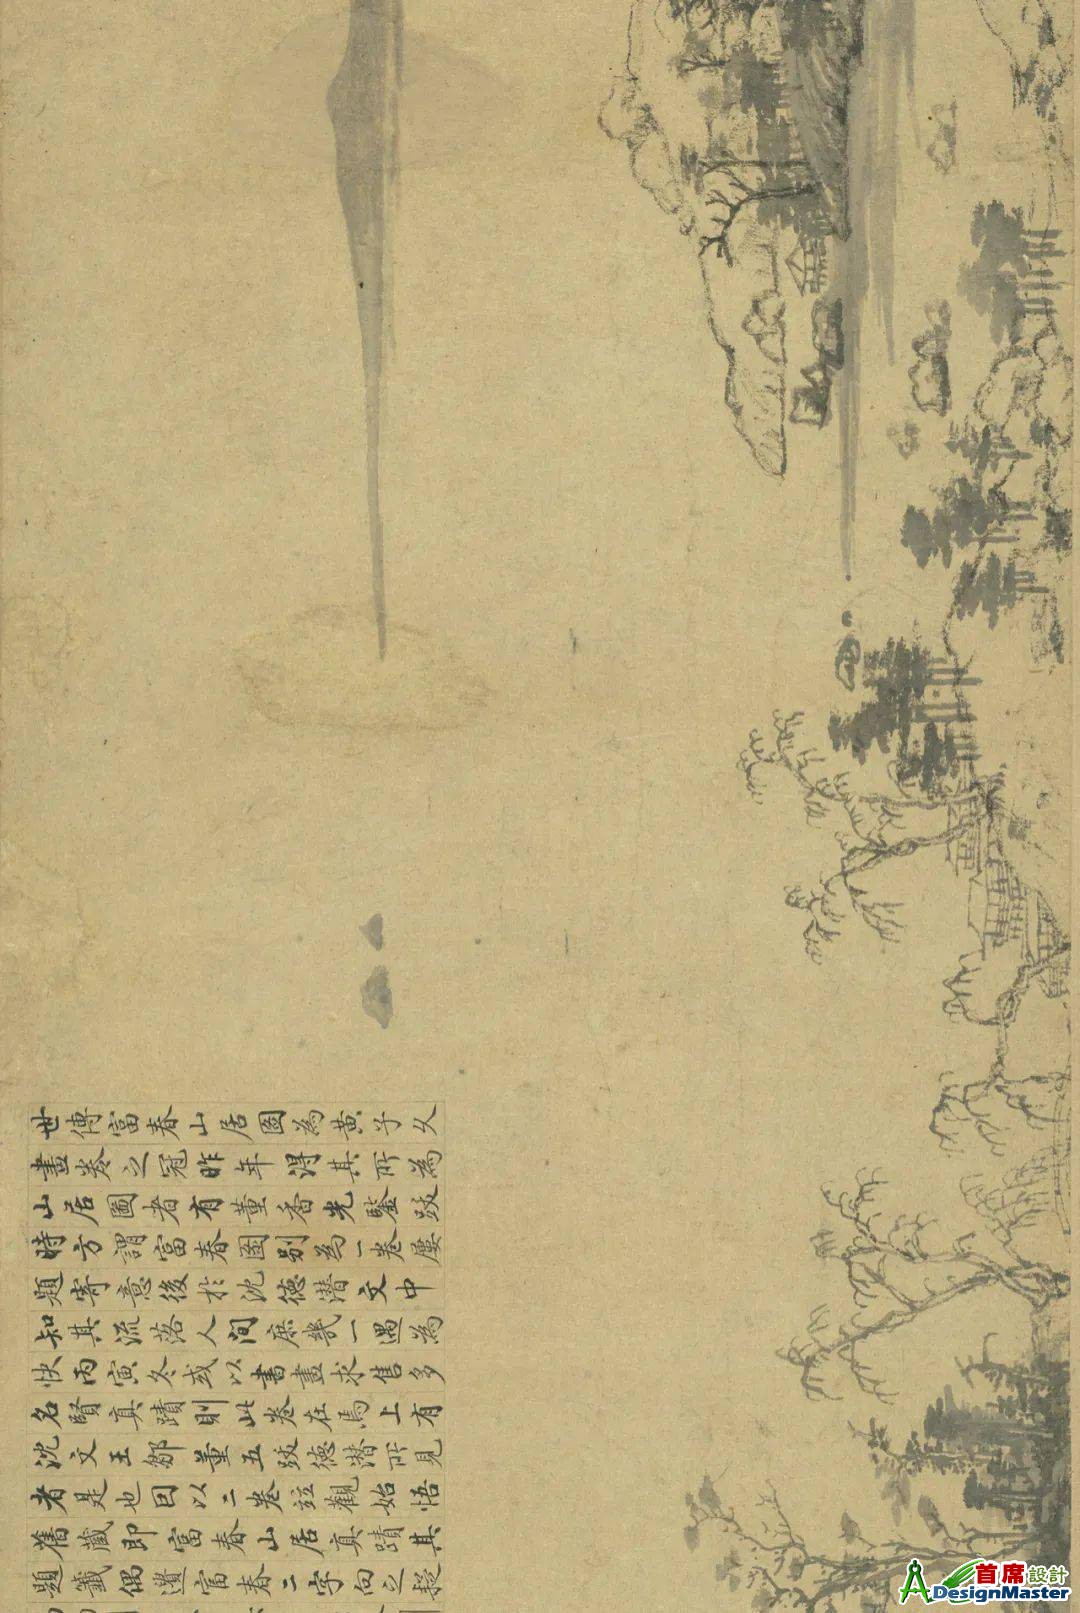 世傳富春山居圖為黃子久
畫卷之冠昨年得其所為
山居圖者有董香光鑒跋
時方謂富春圖別為一卷屢
題寄意後於沈德潛文中
知其流落人間庶幾一遇為
快丙寅冬或以書畫求售多
名賢真蹟則此卷在焉上有
沈文王鄒董五跋德潛所見
者是也因以二卷竝觀始悟
舊藏即富春山居真蹟其
題籤偶遺富春二字向之疑
首席設計
DesignMaster